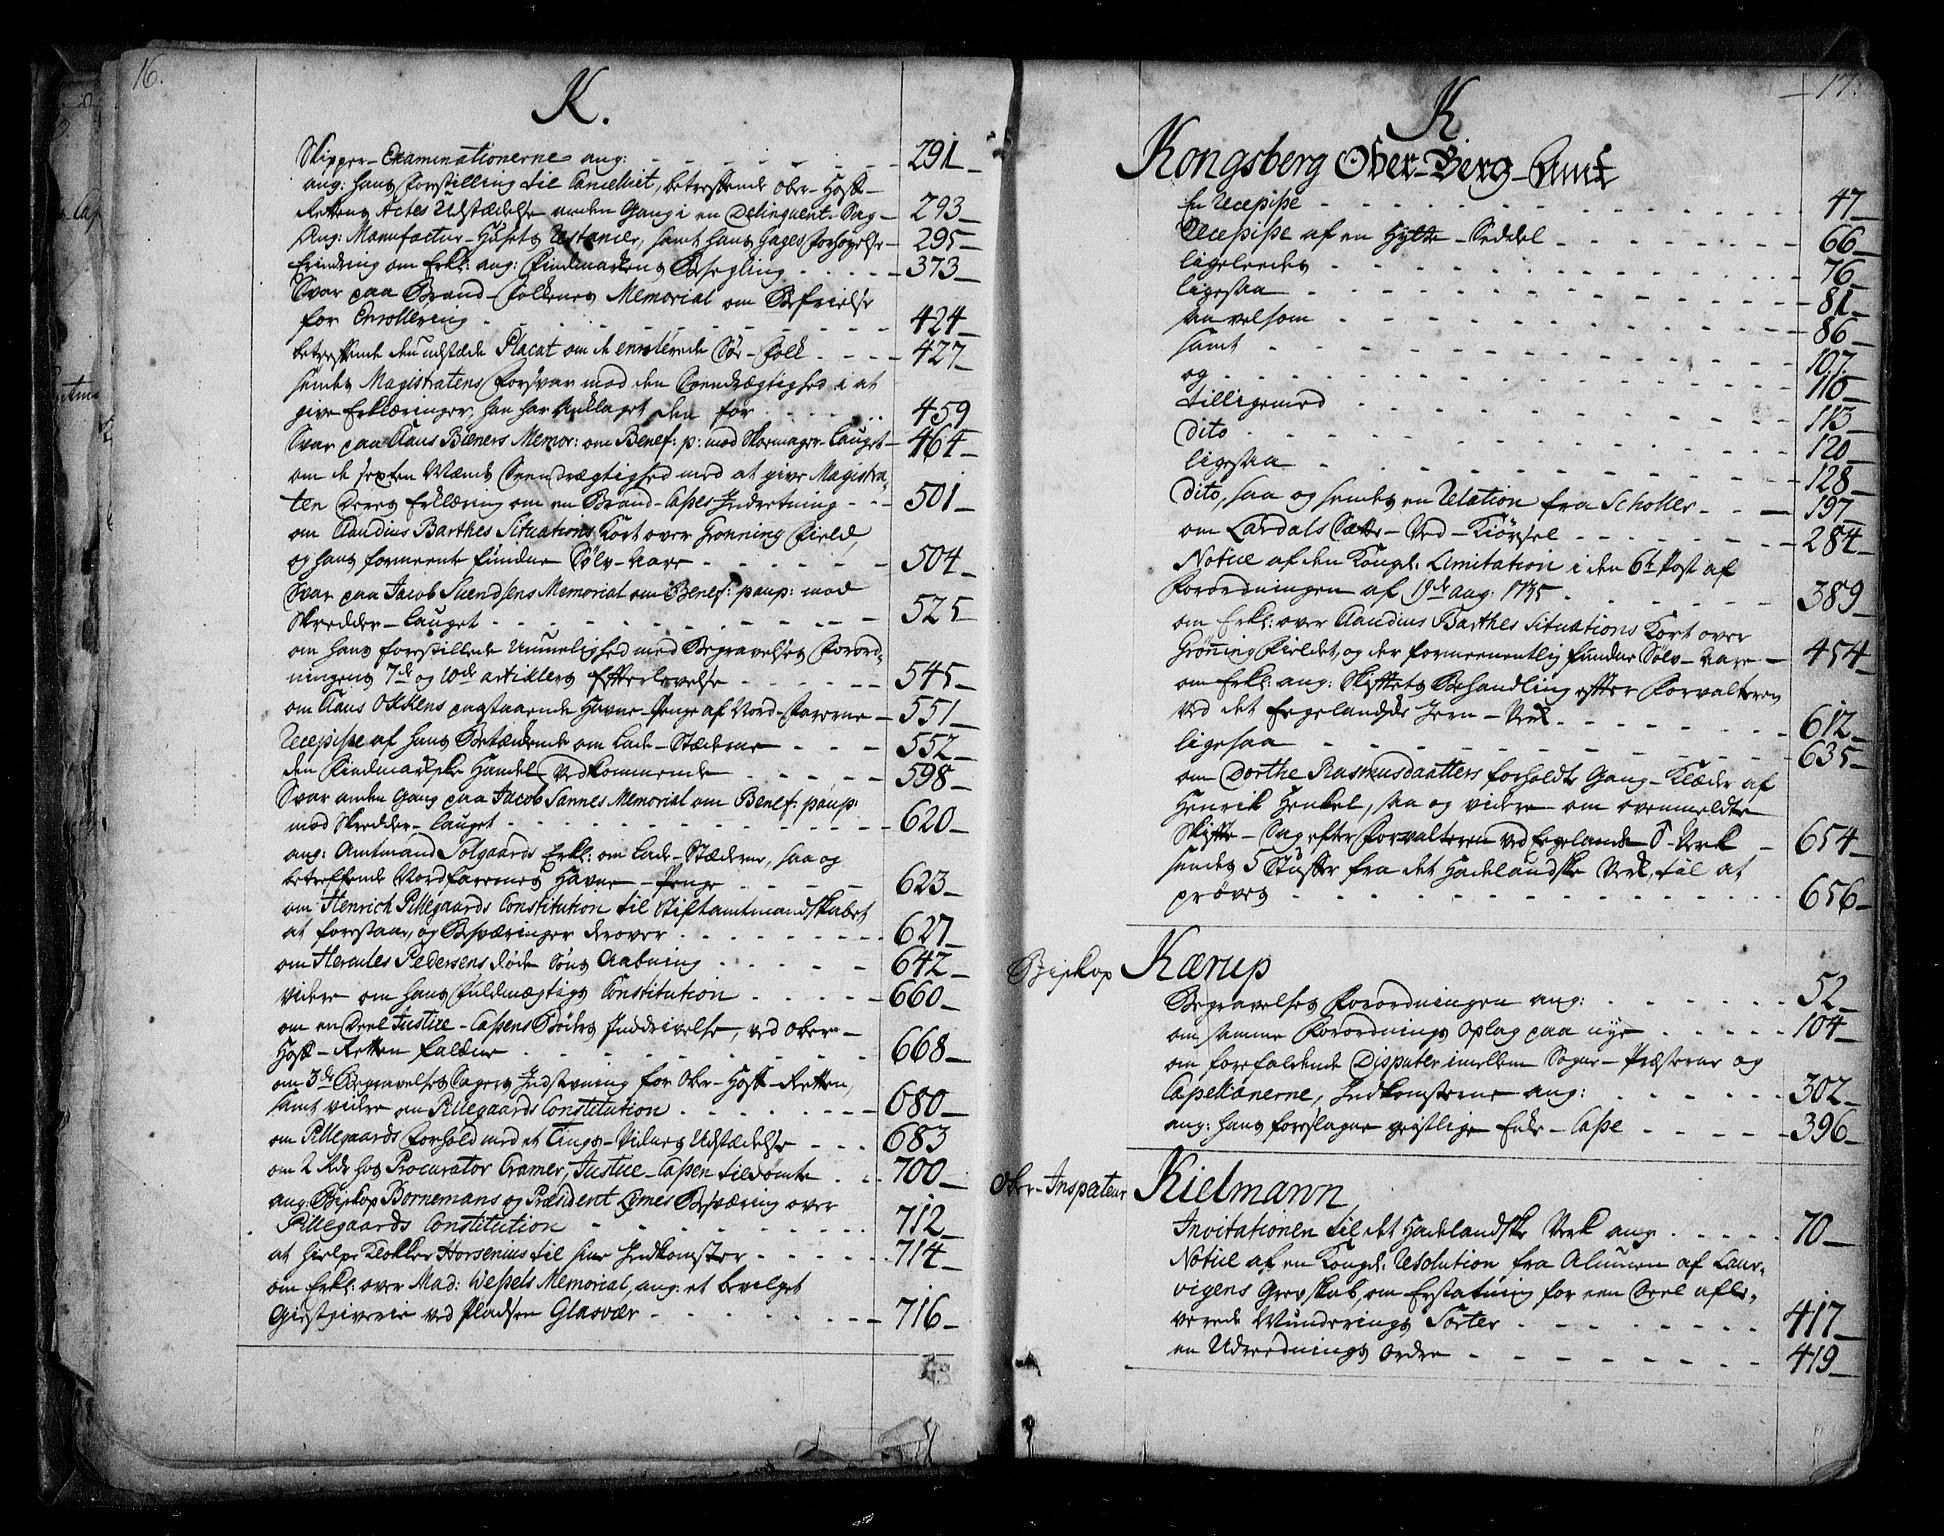 16.
K.
Skipper-Examinationerne ang: 291
ang: hans Forestilling til Cancelliet, betreffende Ober-Hoff-
Rettens Actes Udstædelse anden Gang i en Delinquent-Sag 293
Ang: Manufactur-Huusets Restancer, samt hans Gages Forhøyelse 295
Erindring om Erkl: ang: Findmarkens Besegling 373
Svar paa Brand-Folkenes Memorial om Befrielse
for Enrollering 424
betreffende den udstæde Placat om de enrollerede Søe-Folk 427
sendes Magistratens Forsvar mod den Trendrægtighed i at
give Erklæringer, han har anklaget dem for 459
Svar paa Claus Bieners Memor: om Benef: p: mod Skomager-Lauget 464
om de sexten Mænds Trendrægtighed med at give Magistra-
ten Deres Erklæring om en Brand-Casses Indretning 501
om Claudius Barthes Situations Kort over Grønning Field,
og hans formeente fundne Sølv-Aare 504
Svar paa Jacob Suendsens Memorial om Benef: paup: mod
Skredder-Lauget 525
om hans forestillede Umuelighed med Begravelses Forord-
ningens 7de og 10de Artiklers Efterlevelse 545
om Claus Okkens paastaaende Havne-Penge af Nord-Farerne 551
Recepisse af hans Betænkende om Lade-Stæderne 552
den Findmarkske Handel Vedkommende 598
Svar anden Gang paa Jacob Sannes Memorial om Benef: paup:
mod Skredder-Lauget 620
ang: Amtmand Solgaards Erkl: om Lade-Stæderne, saa og
betreffende Nordfarernes Havne-Penge 623
om Henrich Pillegaards Constitution til Stiftamtmandskabet
at forestaae, og Besværinger derover 627
om Hercules Pedersens døde Søns Aabning 642
videre om hans Fuldmægtigs Constitution 660
om en Deel Justice-Cassens Bøders Inddrivelse, ved Ober-
Hoff-Retten faldne 668
om 3de Begravelses Sagers Indstevning for Ober-Hoff-Retten,
samt videre om Pillegaards Constitution 680
om Pillegaards Forhold med et Tings-Vidnes Udstædelse 683
om 2 Rdr hos Procurator Cramer, Justice-Cassen tildømte 700
ang: Biskop Bornemans og Præsident Lymes Besværing over
Pillegaards Constitution 712
at hielpe Klokker Horsenius til sine Indkomster 714
om Erkl: over Mad: Wessels Memorial, ang: et bevilget
Giestgiverie ved Pladsen Glasvær 716
17.
K
Kongsberg Ober-Berg-Amt
En Recepisse 47
Recepisse af en Hytte-Seddel 66
ligeledes 76
ligesaa 81
saavelsom 86
samt 107
og 110
tilligemed 113
Dito 120
ligesaa 128
Dito, saa og sendes en Relation fra Scholler 197
om Lardals Sætte-Ved-Kiørsel 284
Notice af den Kongel: Limitation i den 6te Post af
Forordningen af 19de aug: 1735 389
om Erkl: over Claudius Barthes Situations Kort over
Grønning Fieldet, og der formeenentlig fundne Sølv-Aare 454
om Erkl: ang: Skifftets Behandling effter Forvalteren
ved det Egelandske Jern-Verk 612
ligesaa 635
om Dorthe Rasmusdaatters forholdte Gang-Klæder af
Henrik Henkel, saa og videre om ovenmeldte
Skiffte-Sag efter Forvalteren ved Egelands ♂-Verk 654
sendes 5 Stuffer fra det Hadelandske Verk, til at
prøves 656
Biskop Kærup
Begravelses Forordningen ang: 52
om samme Forordnings Oplag paa nye 104
om forefaldende Disputer imellem Sogne-Præsterne og
Capellanerne, Indkomsterne ang: 302
ang: hans foreslagne geistlige Enke-Casse 396
Ober-Inspecteur Kielmann
Invitationen til det Hadelandske Verk ang 70
Notice af en Kongel: Resolution fra Alunen af Laur-
vigens Grevskab, om Erstatning for een Deel afle-
verede Munderings Sorter 417
en Udreednings Ordre 419